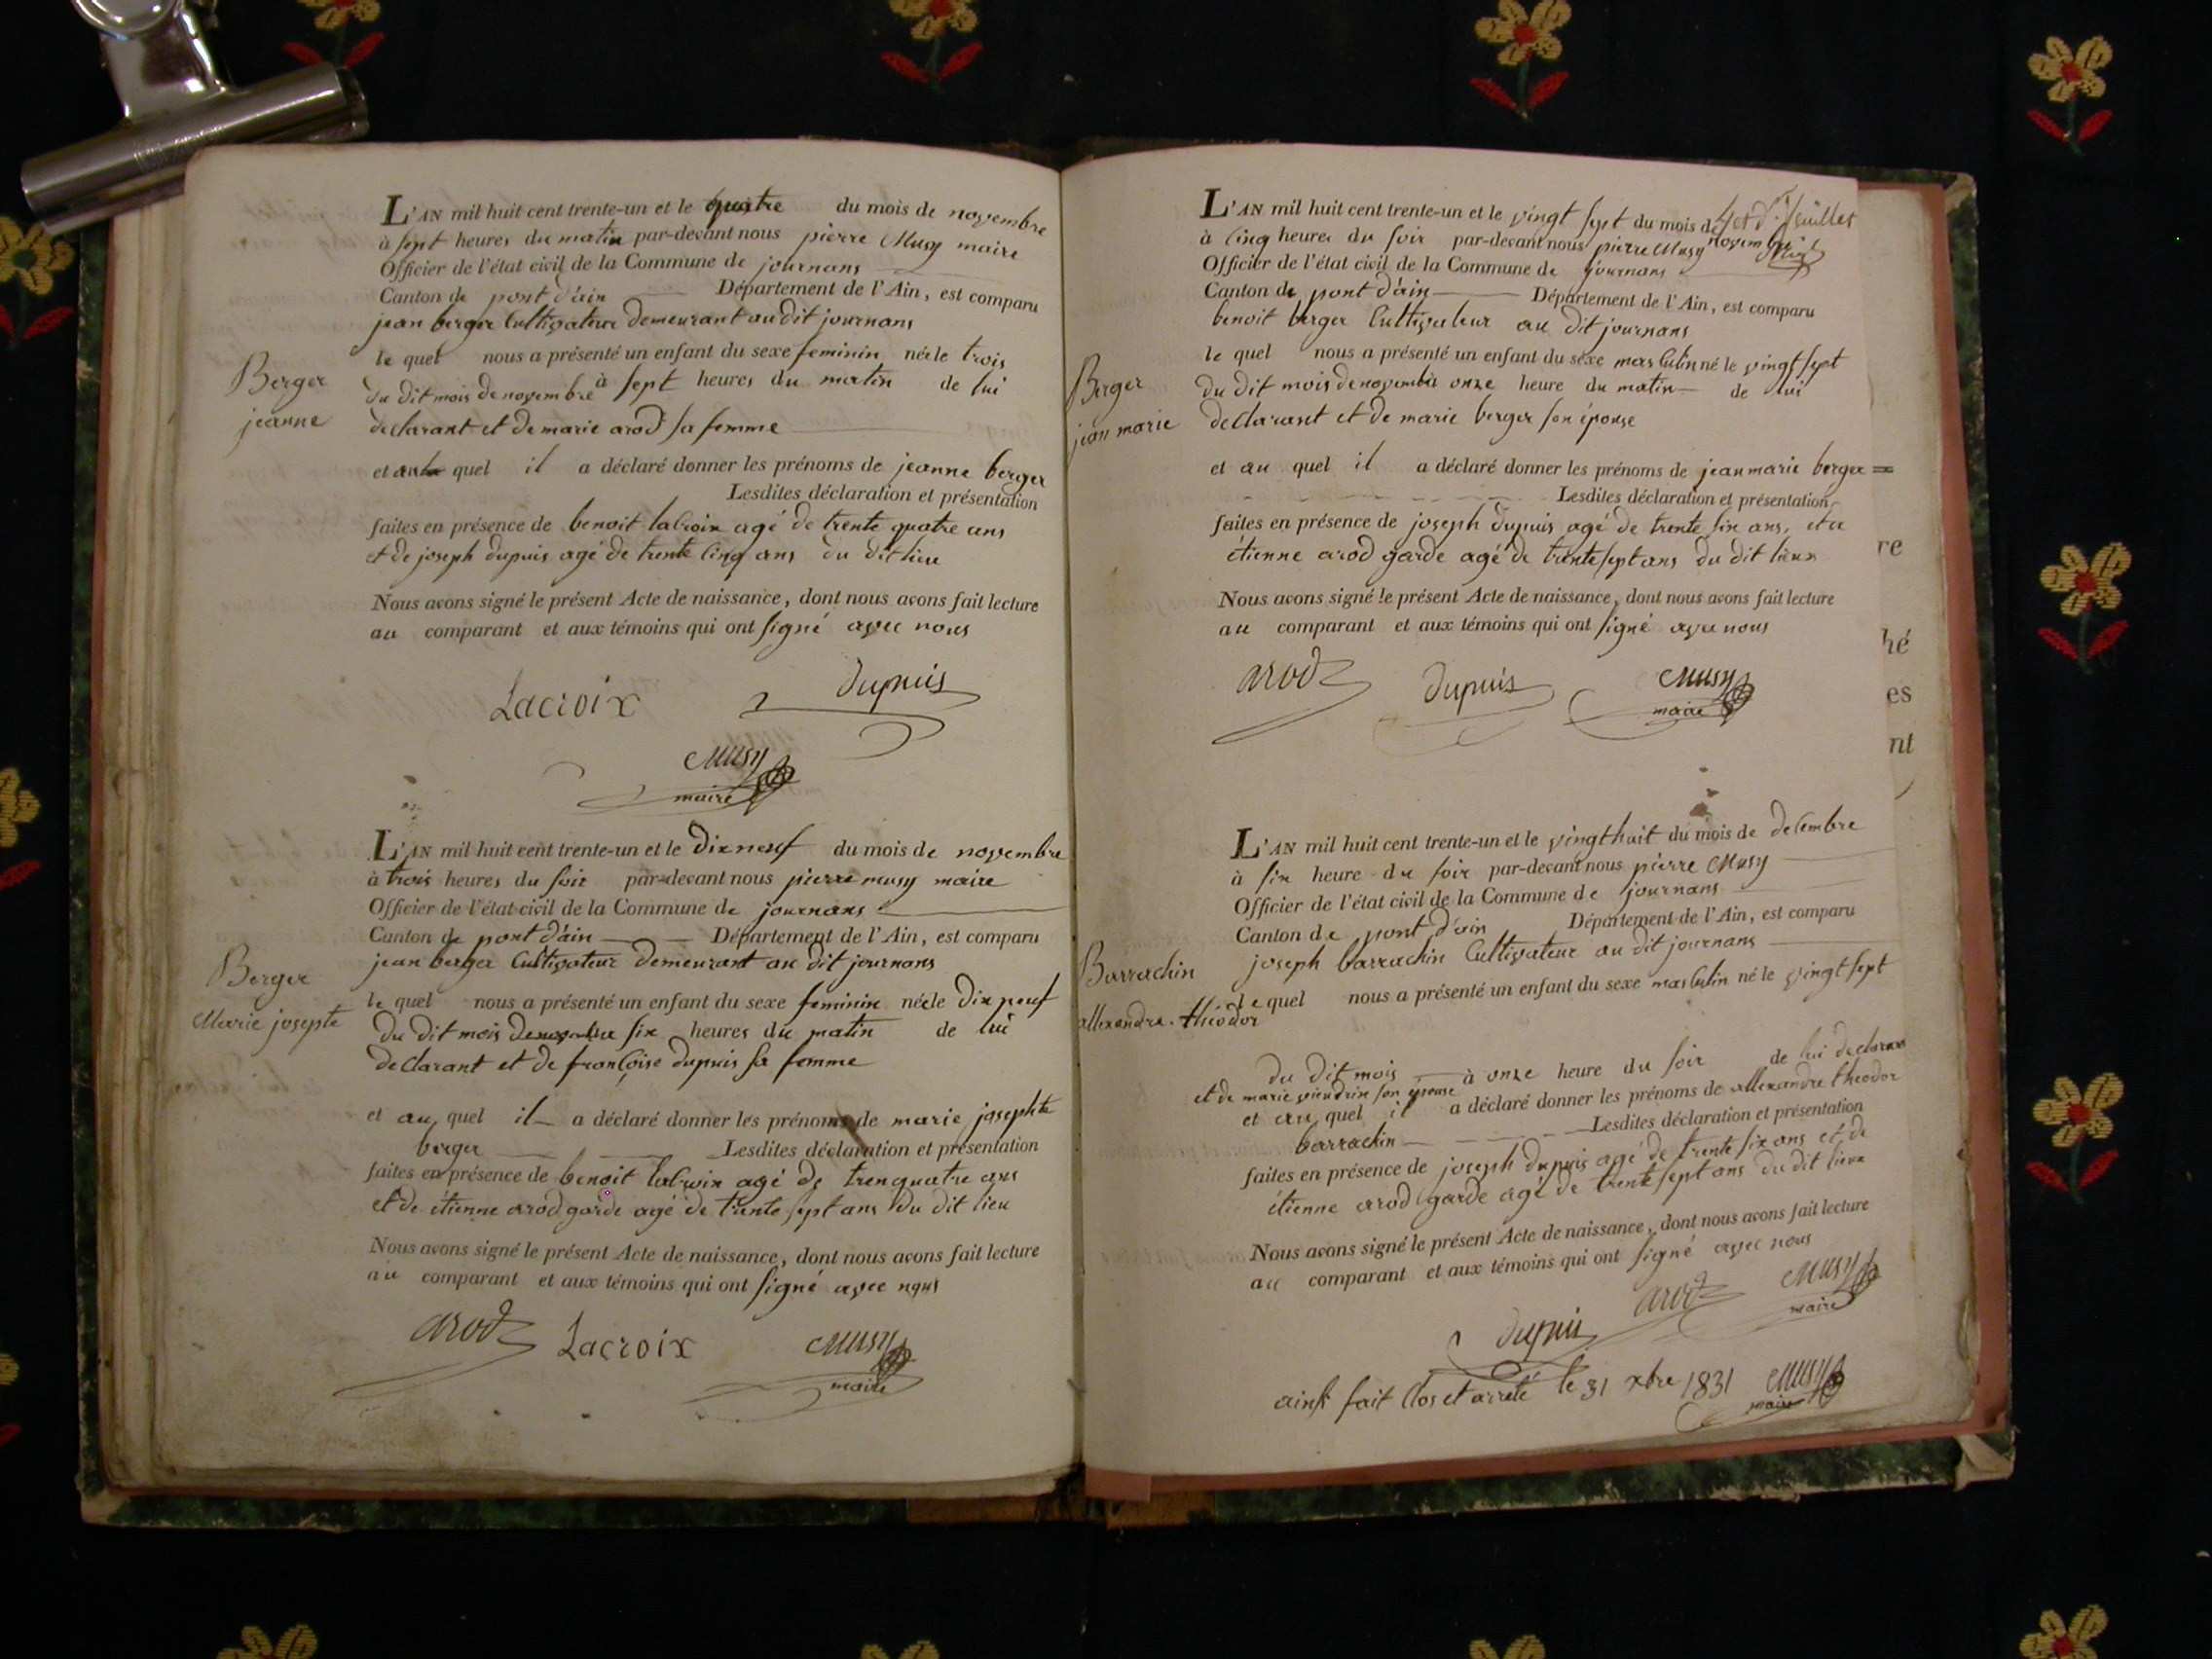 L'AN mil huit cent trente-un et le quatre du mois de novembre
à sept heures du matin par-devant nous pierre Musy maire
Officier de l'état civil de la Commune de journans
Canton de pont d'ain Département de l'Ain, est comparu
jean berger Cultivateur demeurant au dit journans
le quel nous a présenté un enfant du sexe feminin née le trois
Berger
jeanne
du dit mois de novembre à sept heures du matin de lui
declarant et de marie arod sa femme
et au quel il a déclaré donner les prénoms de jeanne berger
Lesdites déclaration et présentation
faites en présence de benoit lacroix agé de trente quatre ans
et de joseph dupuis agé de trente cinq ans du dit lieu
Nous avons signé le présent Acte de naissance, dont nous avons fait lecture
au comparant et aux témoins qui ont signé avec nous
Lacroix dupuis
Musy
maire
L'AN mil huit cent trente-un et le dix neuf du mois de novembre
à trois heures du soir par-devant nous pierre musy maire
Officier de l'état civil de la Commune de journans
Canton de pont d'ain Département de l'Ain, est comparu
jean berger Cultivateur demeurant au dit journans
Berger
Marie josephte
le quel nous a présenté un enfant du sexe feminin née le dix neuf
du dit mois de novembre six heures du matin de lui
declarant et de françoise dupuis sa femme
et au quel il a déclaré donner les prénoms de marie josephte
berger Lesdites déclaration et présentation
faites en présence de benoit lacroix agé de trenquatre ans
et de étienne arod garde agé de trente sept ans du dit lieu
Nous avons signé le présent Acte de naissance, dont nous avons fait lecture
au comparant et aux témoins qui ont signé avec nous
arod Lacroix Musy
maire
L'AN mil huit cent trente-un et le vingt sept du mois de
novembre
à cinq heures du soir par-devant nous pierre Musy
Officier de l'état civil de la Commune de journans
Canton de pont d'ain Département de l'Ain, est comparu
benoit berger Cultivateur au dit journans
le quel nous a présenté un enfant du sexe masculin né le vingt sept
Berger
jean marie
du dit mois de novembre onze heure du matin de lui
declarant et de marie berger son épouse
et au quel il a déclaré donner les prénoms de jean marie berger
Lesdites déclaration et présentation
faites en présence de joseph dupuis agé de trente six ans, et de
étienne arod garde agé de trente sept ans du dit lieux
Nous avons signé le présent Acte de naissance, dont nous avons fait lecture
au comparant et aux témoins qui ont signé avec nous
arod dupuis Musy
maire
L'AN mil huit cent trente-un et le vingt huit du mois de decembre
à six heure du soir par-devant nous pierre Musy
Officier de l'état civil de la Commune de journans
Canton de pont d'ain Département de l'Ain, est comparu
joseph barrachin Cultivateur au dit journans
Barrachin
allexandre théodor
le quel nous a présenté un enfant du sexe masculin né le vingt sept
du dit mois à onze heure du soir de lui declarant
et de marie son épouse
et au quel il a déclaré donner les prénoms de allexandre theodor
barrachin Lesdites déclaration et présentation
faites en présence de joseph dupuis agé de trente six ans et de
étienne arod garde agé de trente sept ans du dit lieux
Nous avons signé le présent Acte de naissance, dont nous avons fait lecture
au comparant et aux témoins qui ont signé avec nous
dupuis arod Musy
maire
ainsi fait Clos et arreté le 31 xbre 1831 Musy
maire
re
hé
es
nt